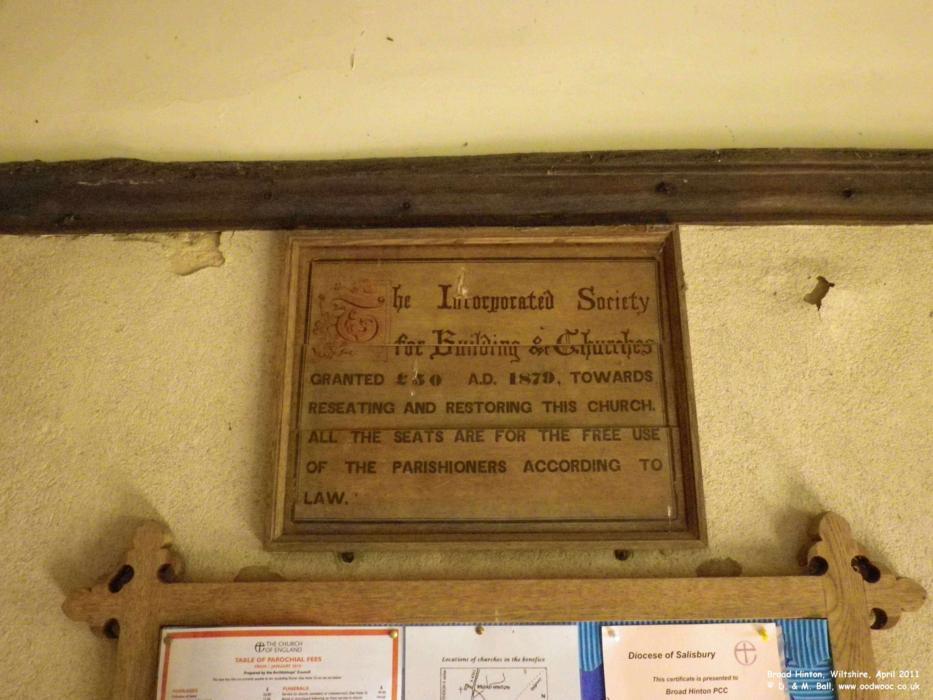 The Incorporated Society
for Building & Churches
GRANTED £50 A.D. 1879, TOWARDS
RESEATING AND RESTORING THIS CHURCH.
ALL THE SEATS ARE FOR THE FREE USE
OF THE PARISHIONERS ACCORDING TO
LAW.
THE CHURCH
OF ENGLAND
TABLE OF PAROCHIAL FEES
Prepared by the Archbishops' Council
FUNERALS
Locations of churches in the benefice
Diocese of Salisbury
This certificate is presented to
Broad Hinton PCC
Broad Hinton, Wiltshire, April 2011
© D. & M. Ball, www.oodwooc.co.uk